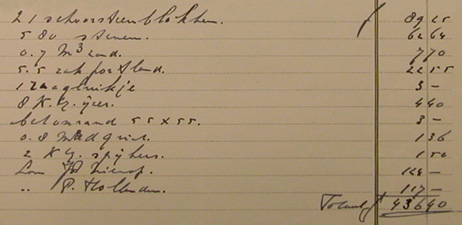 21 schoorsteenblokken. 89 25
580 steenen. 62 64
0.7 M3 zand. 7 70
5.5 zak portland. 22 55
1 zaagbrukje 3 -
8 K.g. ijzer. 4 40
betonrand 55 x 55. 3 -
0.8 1 36
2 Kg. spijkers. 1 50
Loon 124 -
" P. Hollander. 117 -
Totaal 436 40